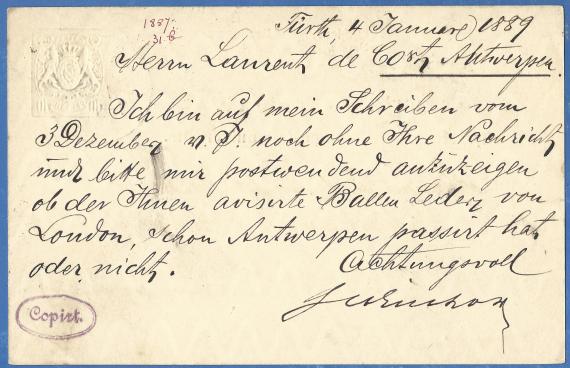 1887.
31 6
Fürth, 4 Januar 1889
Herrn Laurent de Antwerpen.
Ich bin auf mein Schreiben vom
3 Dezember v. J. noch ohne Ihre Nachricht
und bitte mir postwendend anzuzeigen
ob der Ihnen avisirte Ballen Leder von
London, schon Antwerpen passirt hat
oder nicht.
Achtungsvoll
Copirt.